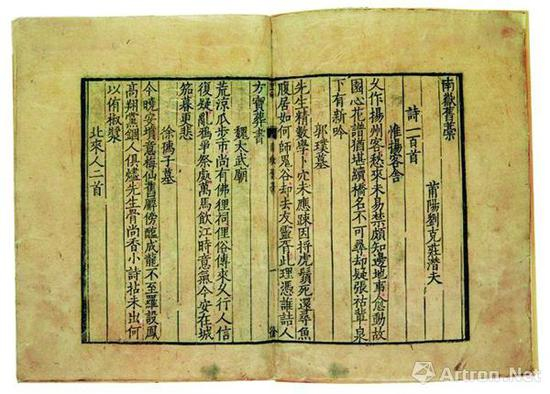 南嶽舊藁
莆陽劉克莊潛夫
詩一百首
惟揚客舍
久作揚州客愁來未易禁頗知邊地事愈動故
園心花譜猶堪續橋名不可尋却疑張祜輩泉
下有新吟
郭璞墓
先生精數學卜穴未應踈因捋虎鬚死還尋魚
腹居如何師鬼谷却去友靈胥此理憑誰詰人
方寶葬書
魏太武廟
荒涼瓜步市尚有佛狸祠俚俗傳來久行人信
復疑亂鴉爭祭處萬馬飲江時意氣今安在城
笳暮更悲
徐孺子墓
今曉安墳意梅仙舊廨傍臨成龍不至羅設鳳
高翔黨錮人俱燼先生骨尚香小詩拈未出何
以侑椒漿
北來人二首
Artron.Net